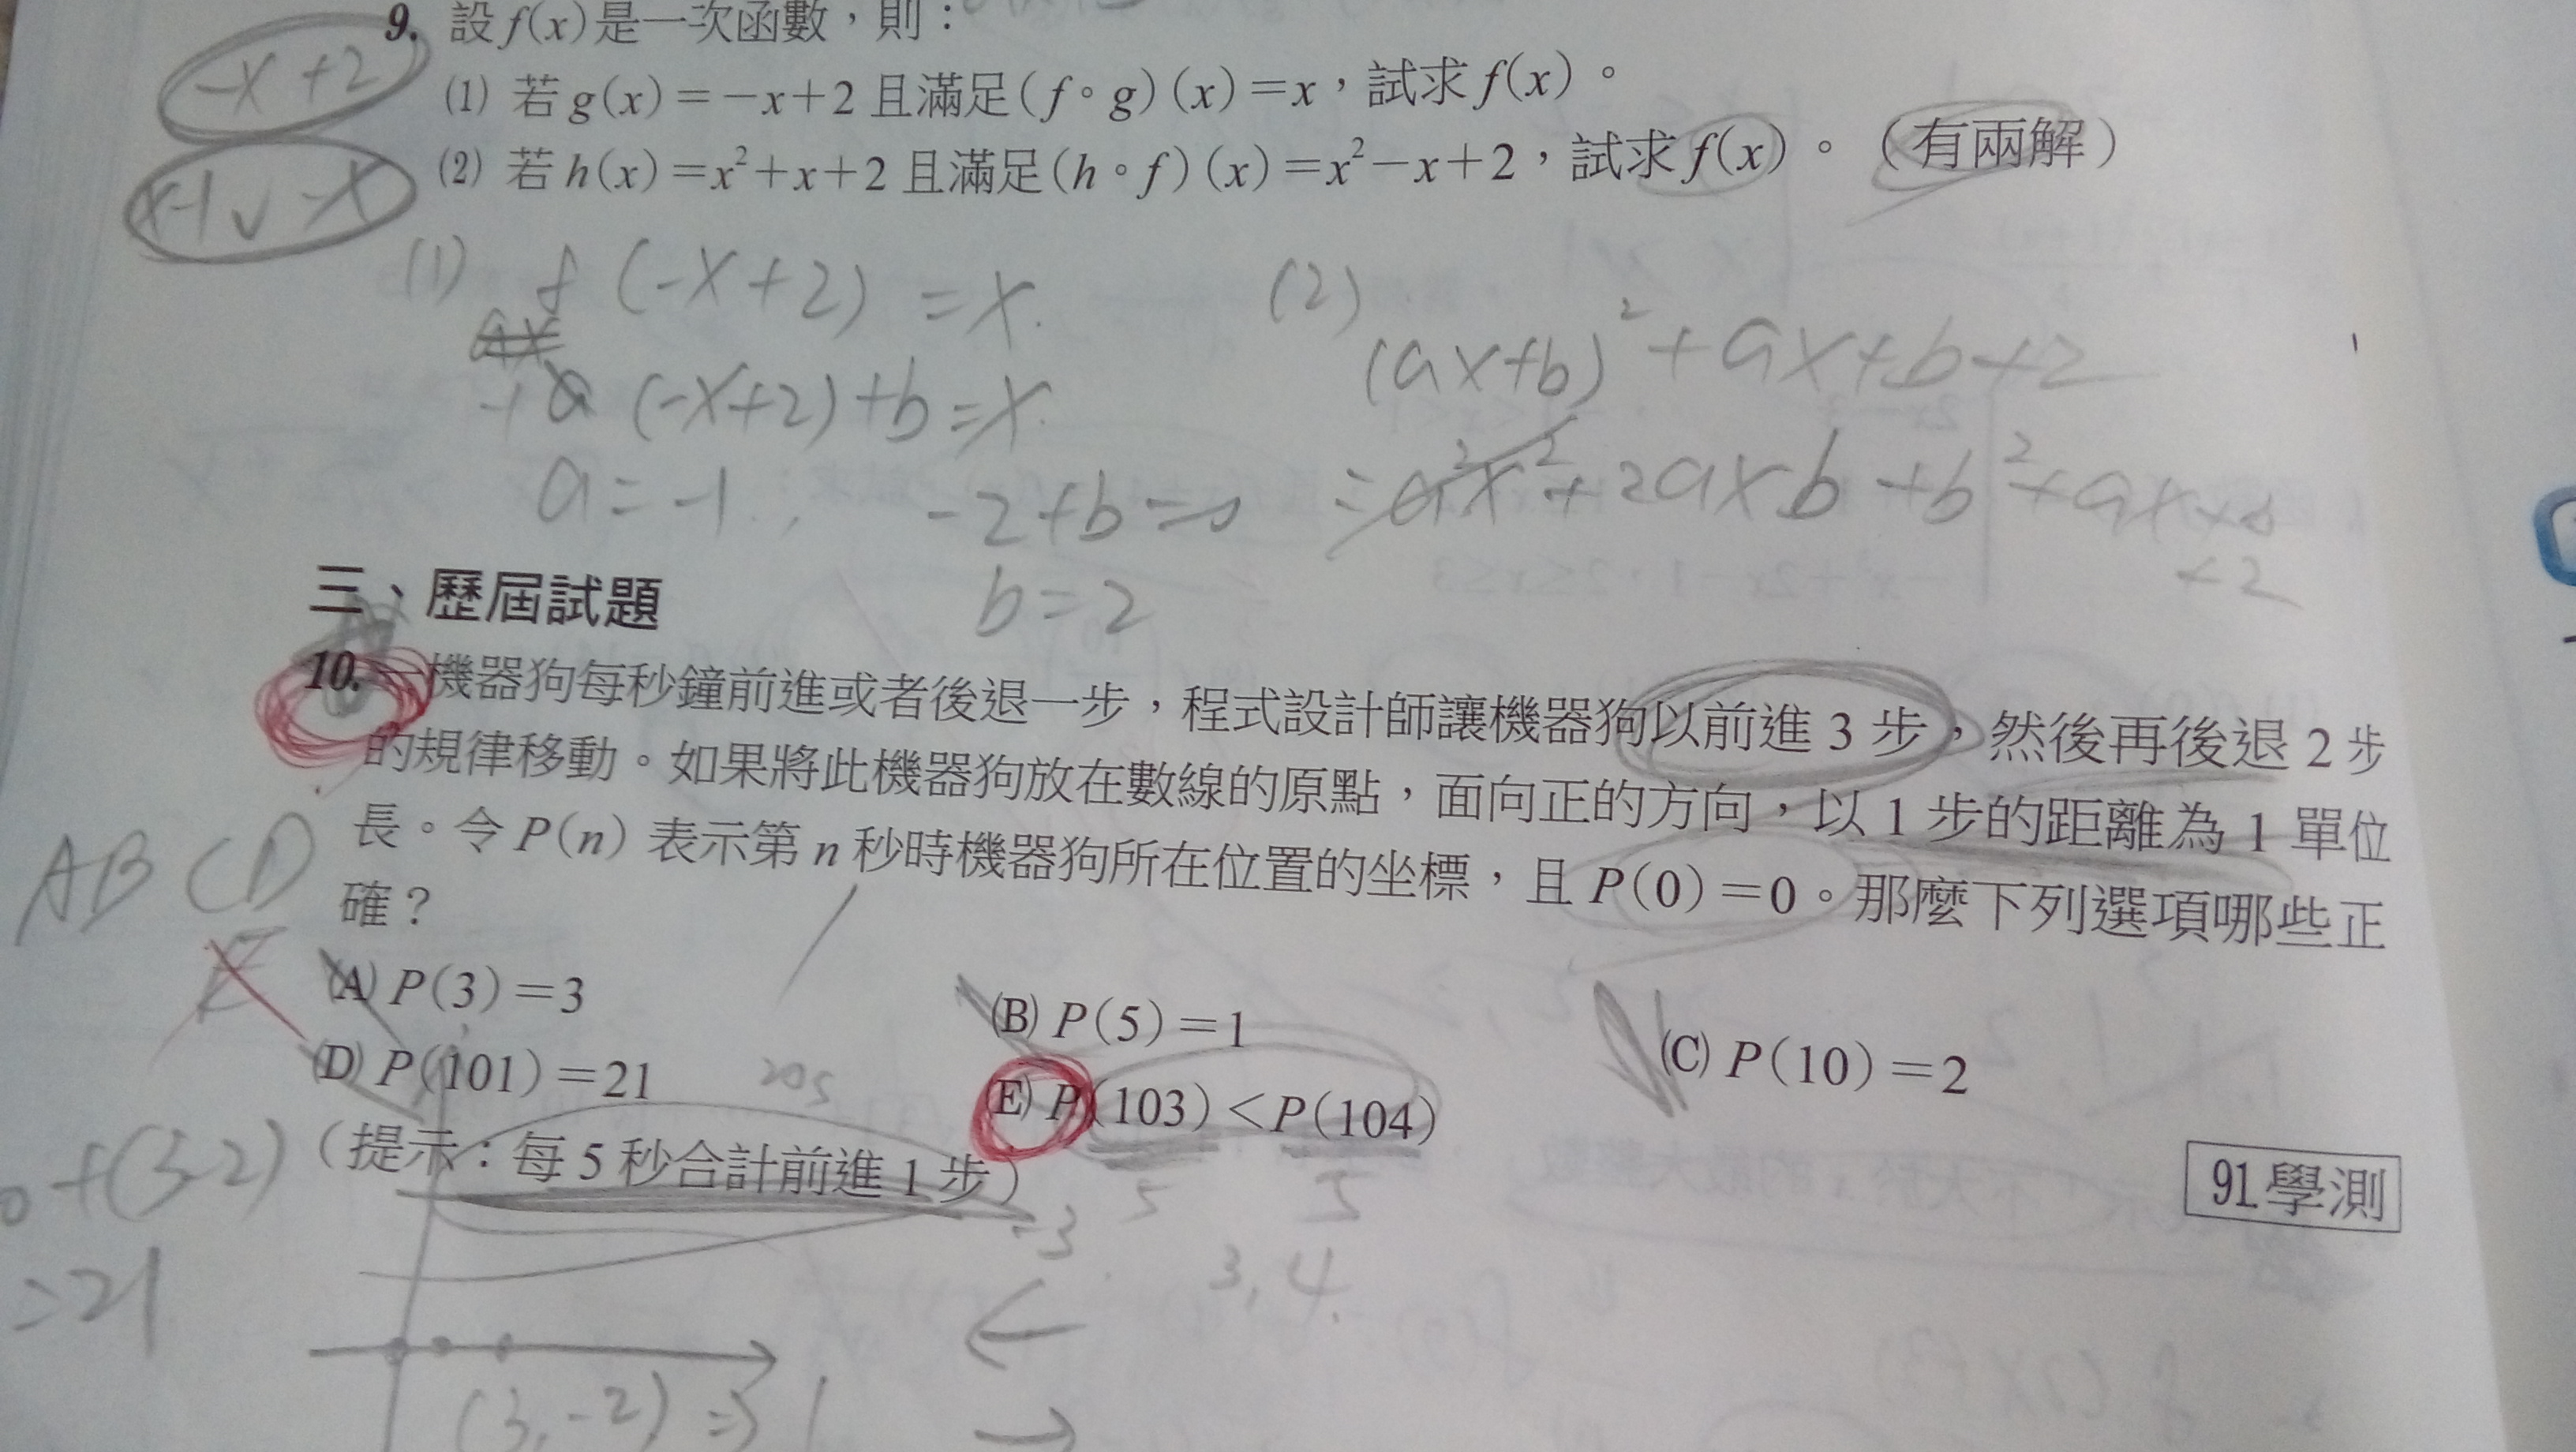 9. 設 f(x) 是一次函數，則：
-x+2
(1) 若 g(x)=-x+2 且滿足 (f∘g)(x)=x，試求 f(x)。
x-1 ∨ -x
(2) 若 h(x)=x²+x+2 且滿足 (h∘f)(x)=x²-x+2，試求 f(x)。（有兩解）
(1) f(-x+2)=x.
(2) (ax+b)²+ax+b+2
(-x+2)+b=x.
a=-1, -2+b=0
=a²x²+2axb+b²+ax+b
+2
b=2
三、歷屆試題
10. 一機器狗每秒鐘前進或者後退一步，程式設計師讓機器狗以前進 3 步，然後再後退 2 步
的規律移動。如果將此機器狗放在數線的原點，面向正的方向，以 1 步的距離為 1 單位
長。令 P(n) 表示第 n 秒時機器狗所在位置的坐標，且 P(0)=0。那麼下列選項哪些正
確？
ABCD
E
(A) P(3)=3
(B) P(5)=1
(C) P(10)=2
(D) P(101)=21
(E) P(103)<P(104)
（提示：每 5 秒合計前進 1 步）
91.學測
5 5
-3
3, 4.
+(3-2)
=21
(3,-2)⇒1